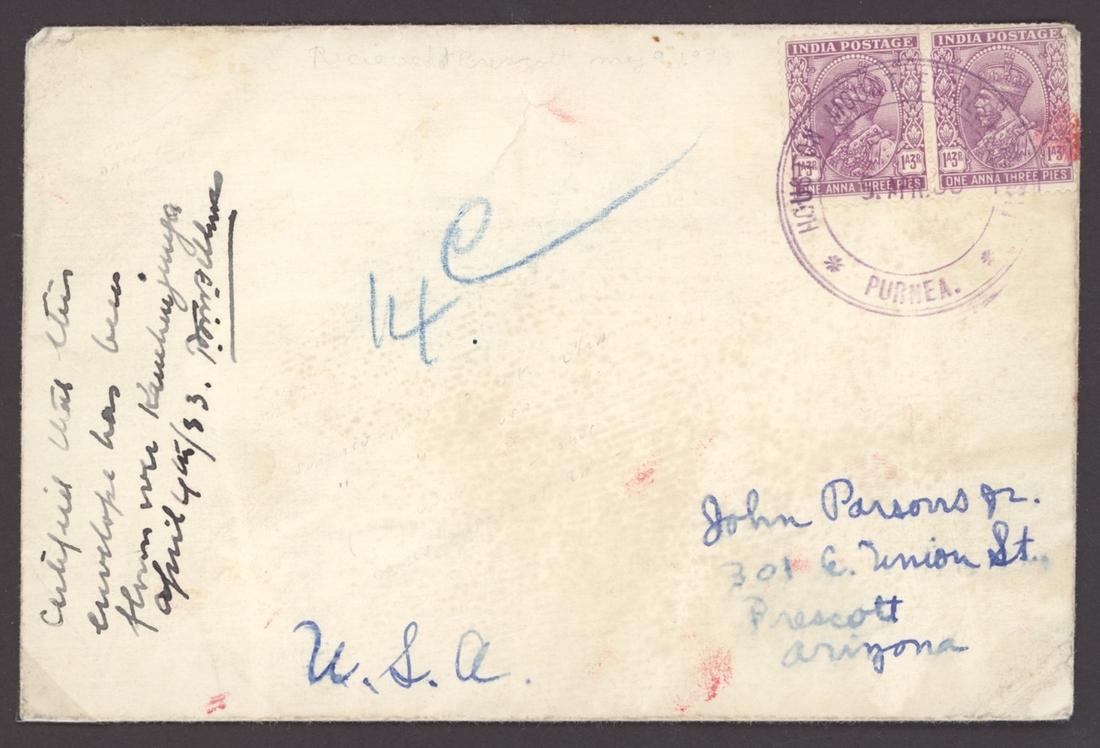 Received Prescott May 9, 1933
INDIA POSTAGE
INDIA POSTAGE
1A3P 1A3P
ONE ANNA THREE PIES
ONE ANNA THREE PIES
HOUSTON MOUNT
* PURNEA. *
4C
Certified that this
envelope has been
flown over Kanchinjunga
April 4th/33.
John Parsons Jr.
301 E. Union St.,
Prescott
Arizona
U.S.A.